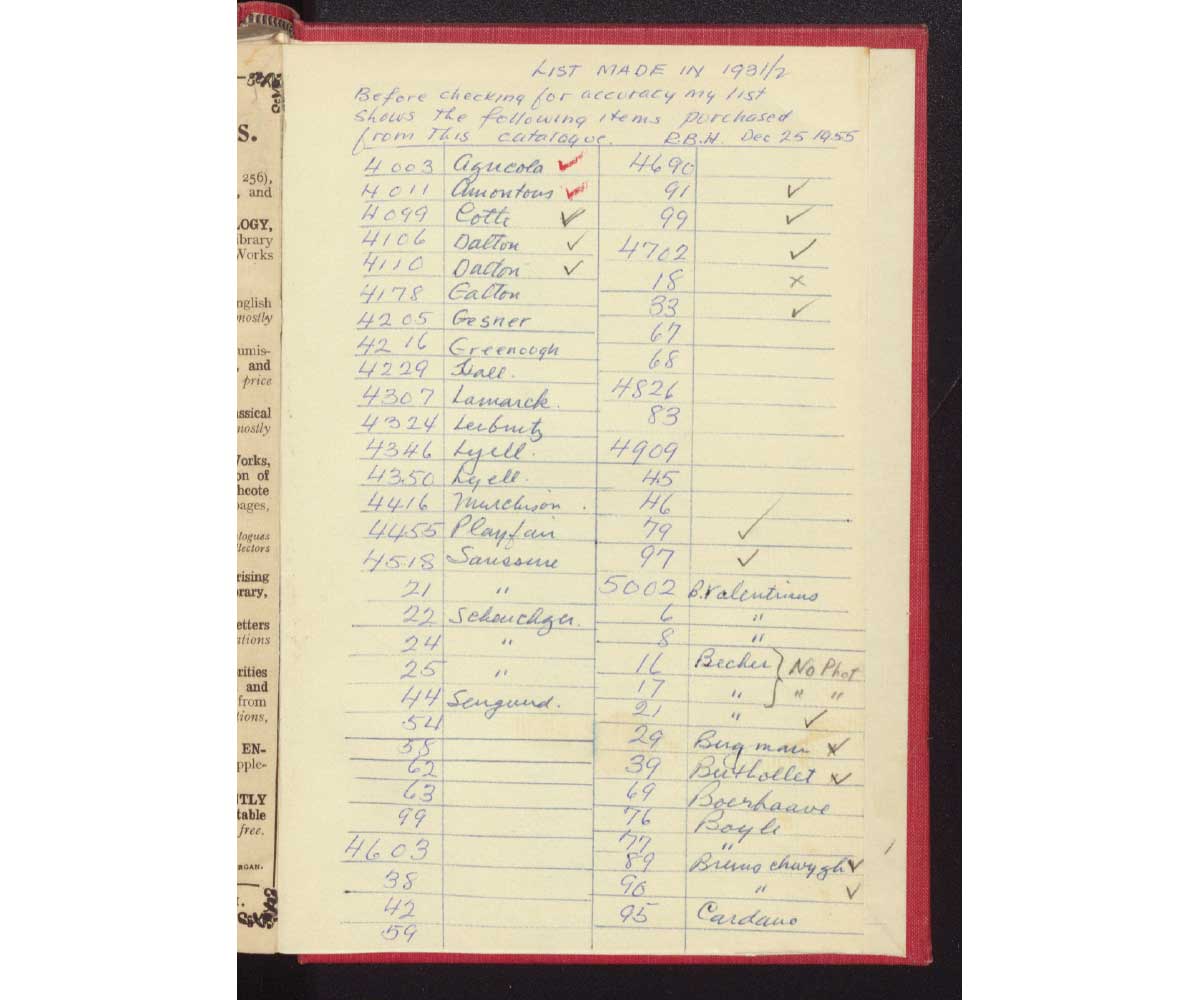 S.
256),
, and
LOGY,
ibrary
Works
nglish
mostly
umis-
, and
price
assical
mostly
Works,
on of
hcote
pages,
logues
llectors
rising
brary,
etters
ations
rities
and
from
tions,
EN-
pple-
TLY
table
free.
RGAN.
LIST MADE IN 1931/2
Before checking for accuracy my list
shows the following items purchased
from this catalogue. R.B.H. Dec 25 1955
4003 Agricola ✓
4011 Amontons ✓
4099 Cotte ✓
4106 Dalton ✓
4110 Dalton ✓
4178 Galton
4205 Gesner
4216 Greenough
4229 Hall.
4307 Lamarck.
4324 Leibnitz
4346 Lyell.
4350 Lyell.
4416 Murchison.
4455 Playfair
4518 Saussure
21 "
22 Scheuchzer.
24 "
25 "
44 Senguerd.
54
58
62
63
99
4603
38
42
59
4690
91 ✓
99 ✓
4702 ✓
18 ×
33 ✓
67
68
4826
83
4909
45
46
79 ✓
97 ✓
5002 B. Valentinus
6 "
8 "
16 Becher } No Phot
17 " } " "
21 " ✓
29 Bergman ✓
39 Berthollet ✓
69 Boerhaave
76 Boyle
77 "
89 Brunschwygk ✓
90 " ✓
95 Cardano